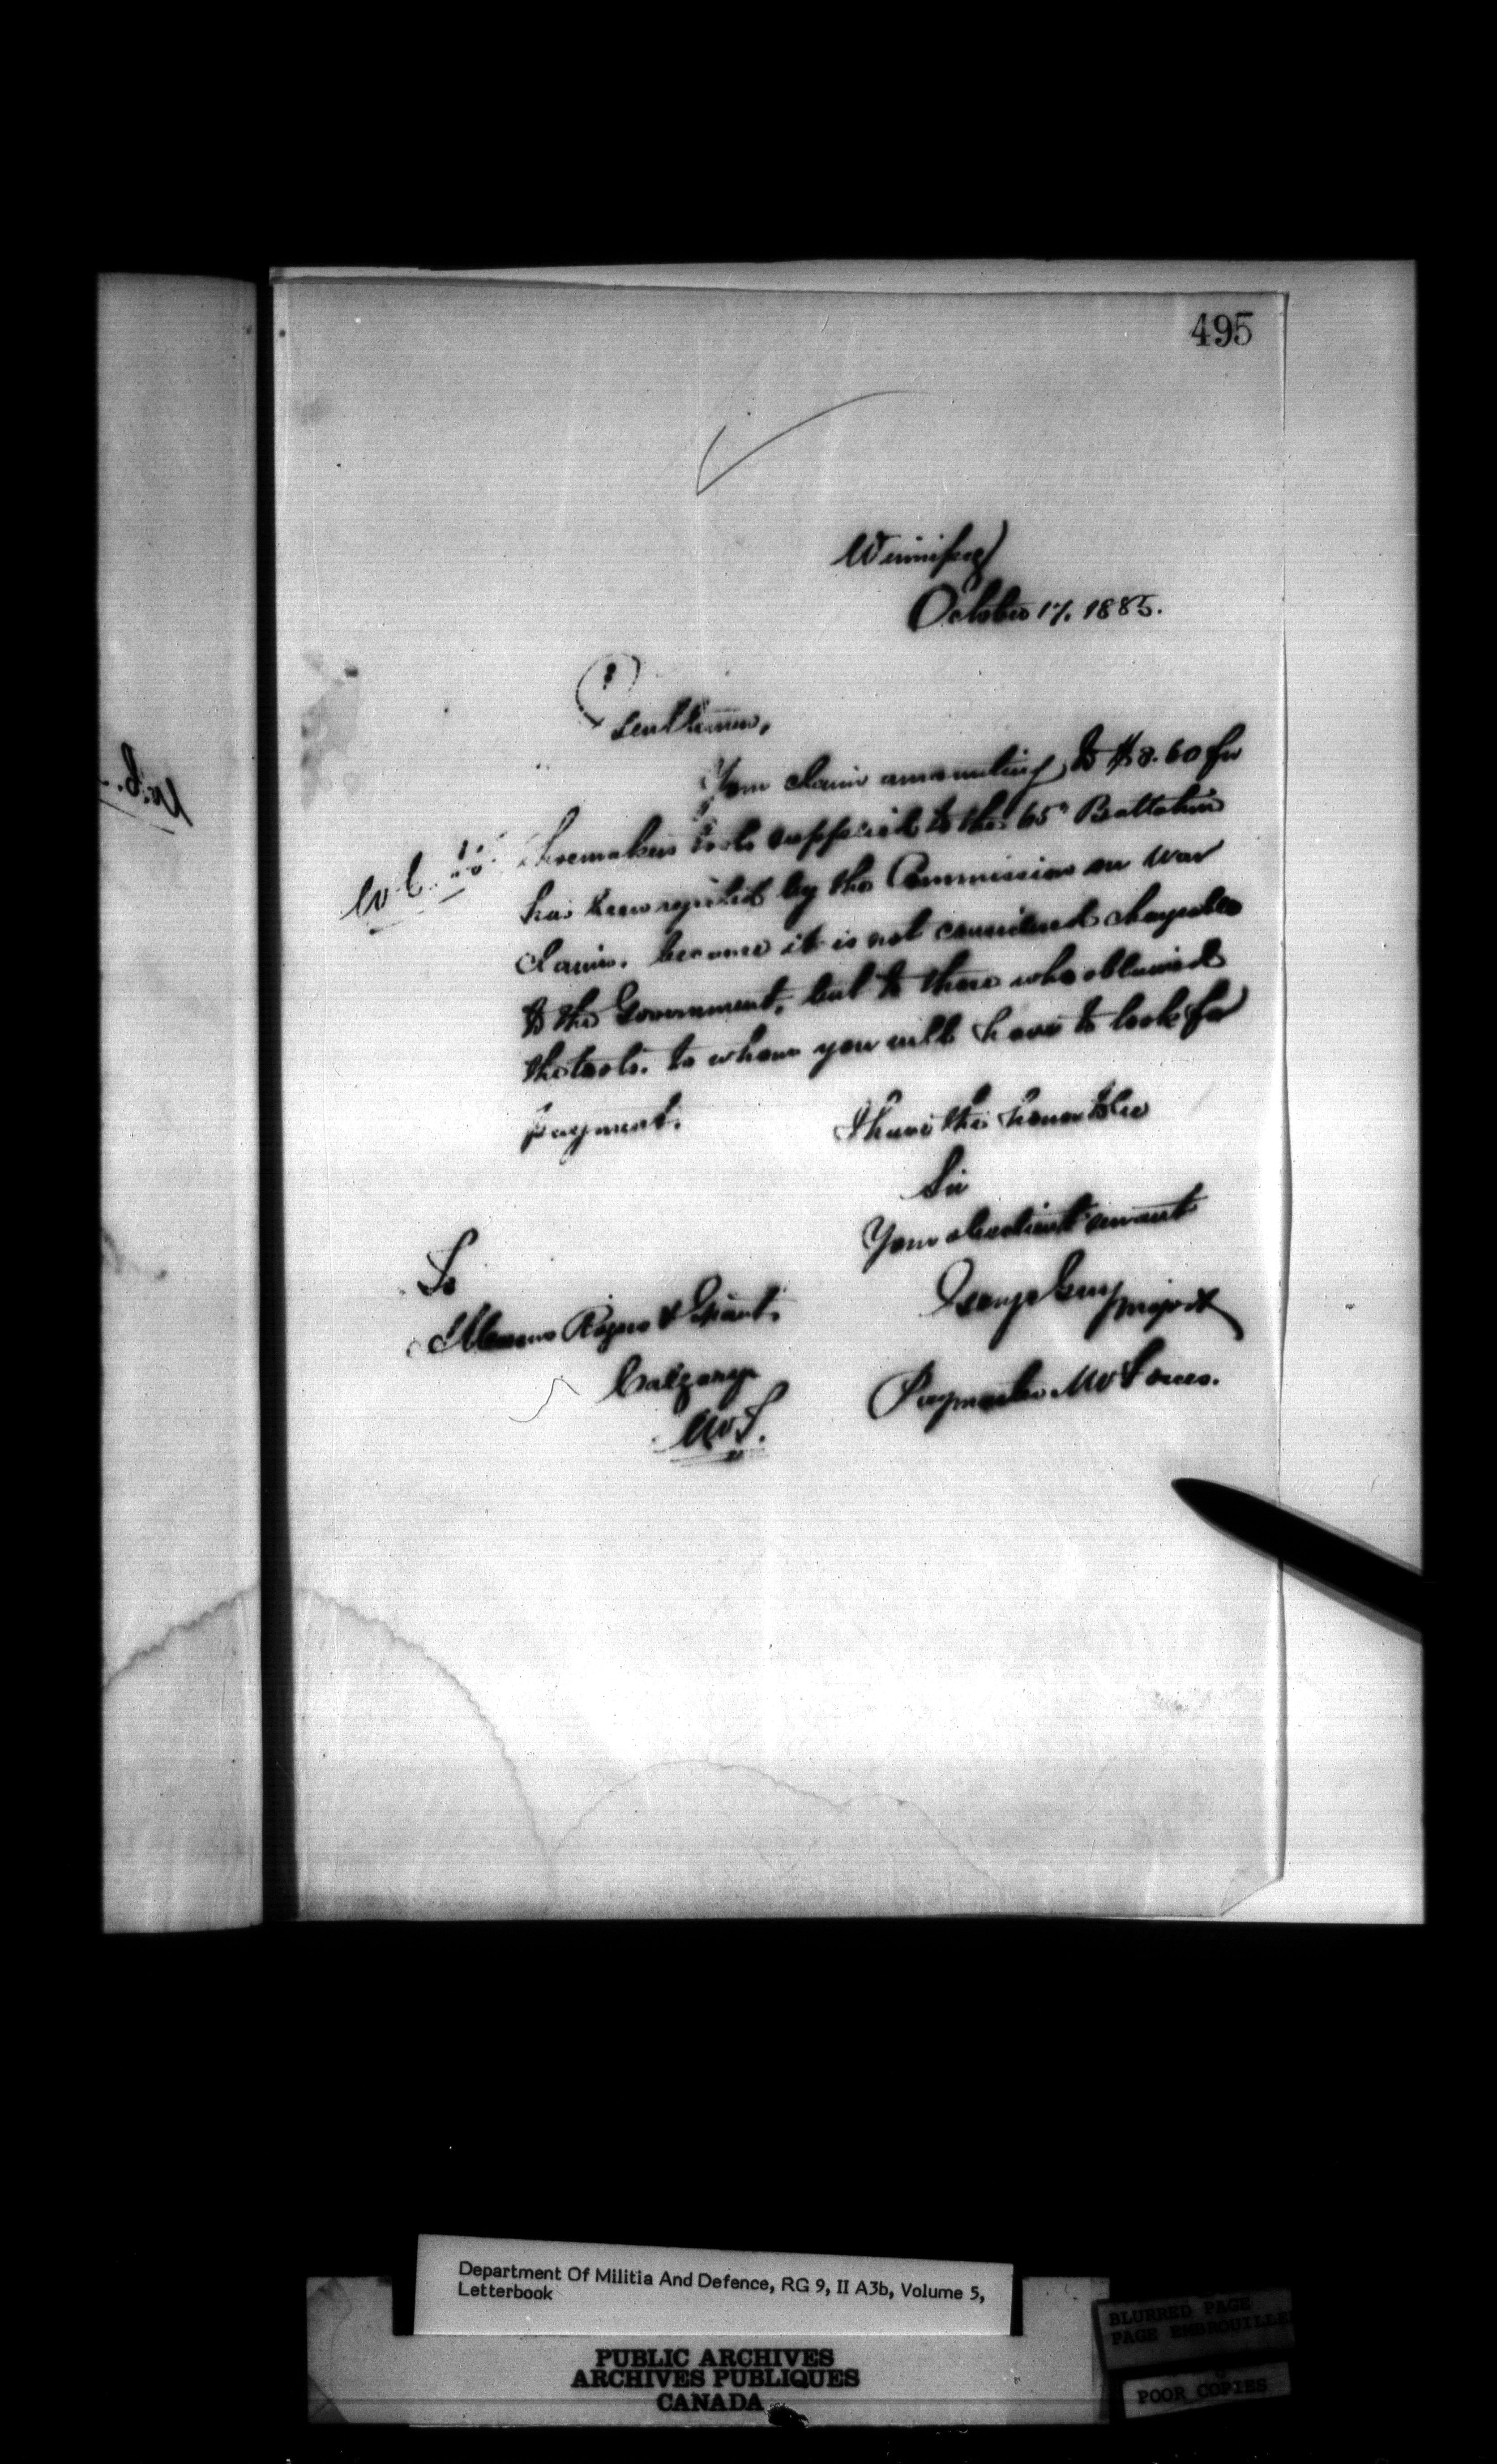 495
Winnipeg
October 17. 1885.
Gentlemen,
Your claim amounting to $8.60 for
shoemakers tools supplied to the 65th Battalion
has been rejected by the Commission on War
Claims, because it is not considered chargeable
to the Government, but to those who obtained
the tools, to whom you will have to look for
payment.
I have the honor to be
Sir
Your obedient servant
George Guy Major
Paymaster NW Forces.
To
Messrs Rogers & Grant,
Calgary
NWT.
Department Of Militia And Defence, RG 9, II A3b, Volume 5,
Letterbook
PUBLIC ARCHIVES
ARCHIVES PUBLIQUES
CANADA
BLURRED PAGE
PAGE EMBROUILLE
POOR COPIES